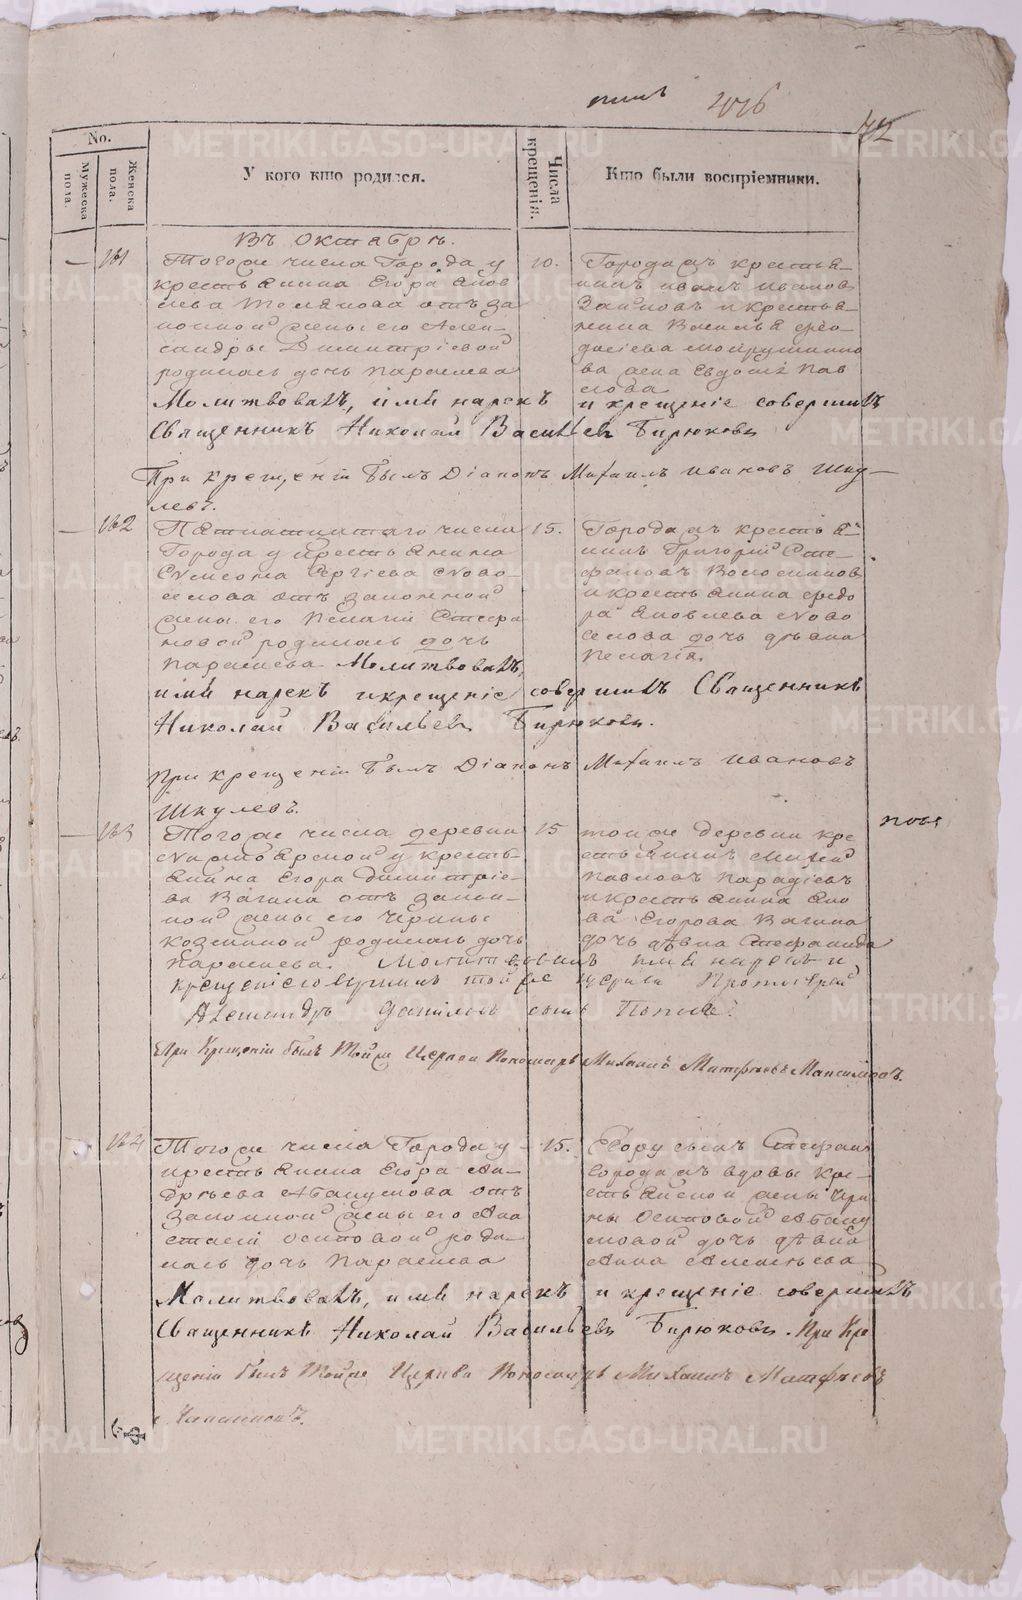 446
72
No.
Мужеска пола.
Женска пола.
У кого кто родился.
Числа крещенія.
Кто были воспріемники.
Въ Октябрѣ.
161
Тогоже числа Города у
крестьянина Егора Яков
лева отъ за
конной жены его Алек-
сандры Димитріевой
родилась дочь Параскева
10.
Города жъ крестья-
нинъ Иванъ Ивановъ
и крестья-
нина Василья Фео-
досіева
ва жена Евдокія Пав
лова
Молитвовалъ, имя нарекъ и крещеніе совершилъ
Священникъ Николай Васильевъ Бирюковъ
При крещеніи былъ Діаконъ Михаилъ Ивановъ Шку-
левъ.
162
Пятнатцатаго числа
Города у крестьянина
Симеона Сергіева Ново-
селова отъ законной
жены его Пелагіи Стефа
новой родилась дочь
Параскева Молитвовалъ,
15.
Города жъ крестья-
нинъ Григорій Сте-
фановъ
и крестьянина Федо
ра Яковлева Ново
селова дочь дѣвка
Пелагія.
имя нарекъ и крещеніе совершилъ Священникъ
Николай Васильевъ Бирюковъ.
При крещеніи былъ Діаконъ Михаилъ Ивановъ
Шкулевъ.
163
Тогоже числа деревни
у кресть-
янина Егора Димитріе-
ва Вагина отъ закон-
ной жены его Ирины
Козминой родилась дочь
Параскева.
15
тойже деревни кре
стьянинъ
Павловъ
и крестьянина Яко
ва Егорова Вагина
дочь дѣвка Стефанида
Молитвовалъ имя нарекъ и
крещеніе совершилъ тойже церкви Протоіерей
Александръ Даніиловъ сынъ Поповъ
При Крещеніи былъ Тойже Церкви Пономарь Михаилъ Матфѣевъ Максимовъ.
164
Тогоже числа Города у
крестьянина Егора Ан-
дрѣева Абакумова отъ
законной жены его Ана
стасіи Осиповой роди-
лась дочь Параскева
15.
сынъ Стефанъ
Города жъ вдовы кре-
стьянской жены Ири
ны Осиповой Абаку
мовой дочь дѣвка
Анна Алексѣева
Молитвовалъ, имя нарекъ и крещеніе совершилъ
Священникъ Николай Васильевъ Бирюковъ. При Кре
щеніи былъ Тойже Церкви Пономарь Михаилъ Матфѣевъ
METRIKI.GASO-URAL.RU